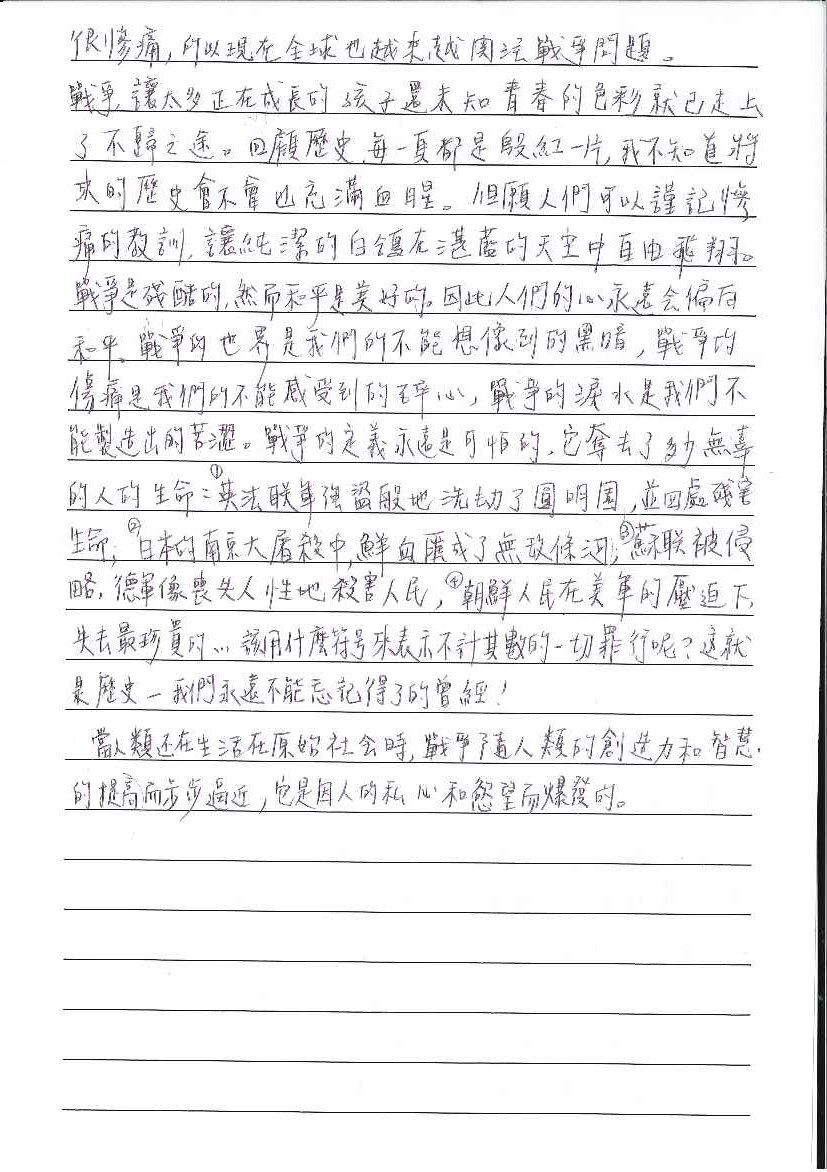 很慘痛,所以現在全球也越來越関注戰爭問題。
戰爭,讓太多正在成長的孩子還未知青春的色彩就已走上
了不歸之途。回顧歷史,每一頁都是殷紅一片,我不知道將
來的歷史會不會也充滿血腥。但願人們可以謹記慘
痛的教訓,讓純潔的白鴿在湛藍的天空中自由飛翔。
戰爭是殘酷的,然而和平是美好的。因此人們的心永遠会偏向
和平。戰爭的世界是我們的不能想像到的黑暗,戰爭的
傷痛是我們的不能感受到的碎心,戰爭的淚水是我們不
能製造出的苦澀。戰爭的定義永遠是可怕的,它奪去了多少無辜
的人的生命:①英法联軍強盜般地洗劫了圓明園,並四處殘害
生命;②日本的南京大屠殺中,鮮血匯成了無数條河;③蘇联被侵
略,德軍像喪失人性地殺害人民,④朝鮮人民在美軍的壓迫下,
失去最珍貴的…該用什麼符号來表示不計其數的一切罪行呢?这就
是歷史—我們永遠不能忘記得了的曾經!
當人類还在生活在原始社会時,戰爭隨人類的創造力和智慧
的提高而步步逼近,它是因人的私心和慾望而爆發的。